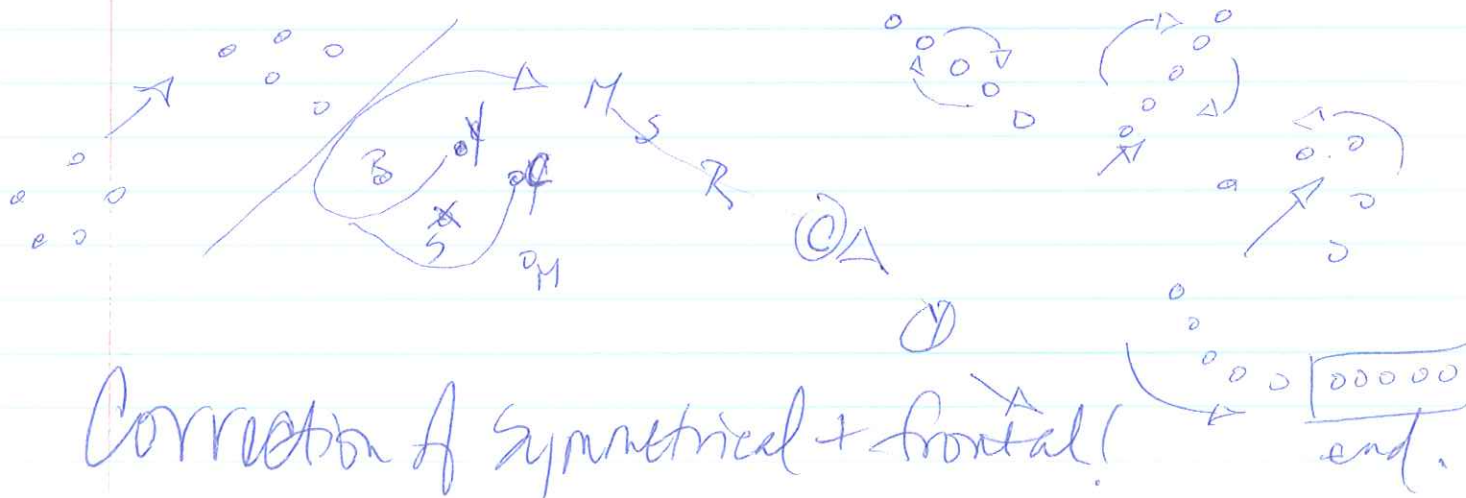 M
S
R
B
Y
C
S
M
C
Y
Correction of Symmetrical + frontal!
end.